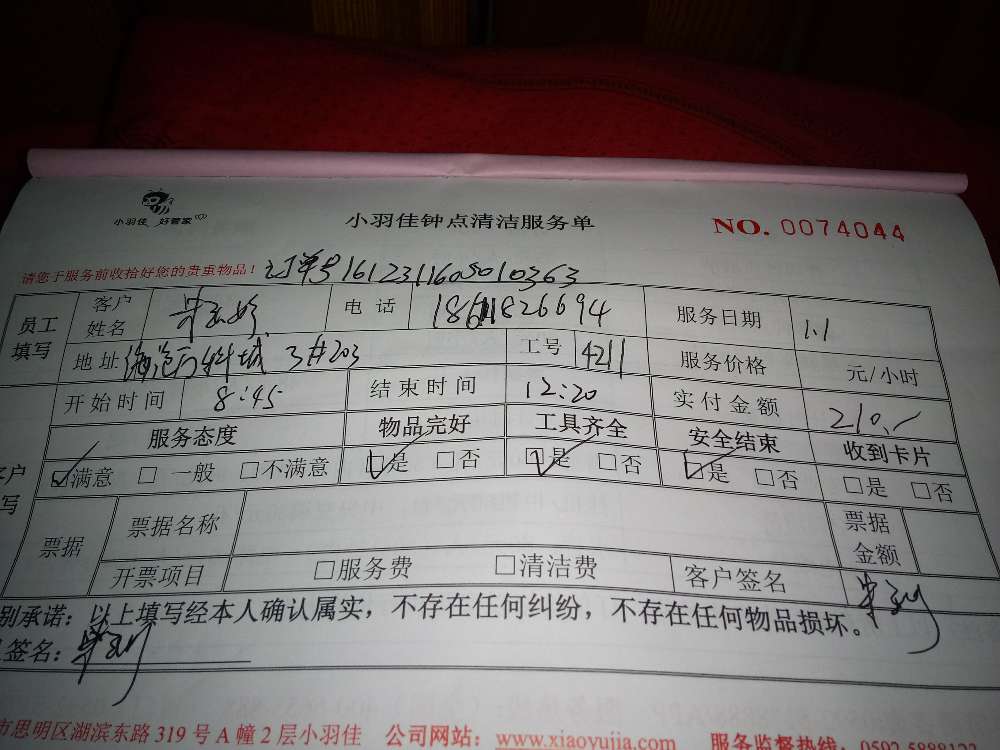 小羽佳 好管家
小羽佳钟点清洁服务单
NO. 0074044
请您于服务前收拾好您的贵重物品！
订单号1612311605010363
员工填写 客户姓名 电话 18611826694 服务日期 1.1
地址 3#203 工号 4211 服务价格 元/小时
开始时间 8:45 结束时间 12:20 实付金额 210.-
服务态度 物品完好 工具齐全 安全结束 收到卡片
☑满意 □一般 □不满意 ☑是 □否 ☑是 □否 ☑是 □否 □是 □否
票据 票据名称 票据金额
开票项目 □服务费 □清洁费 客户签名
别承诺：以上填写经本人确认属实，不存在任何纠纷，不存在任何物品损坏。
签名：
市思明区湖滨东路319号A幢2层小羽佳 公司网站：www.xiaoyujia.com 服务监督热线：0592-5888123